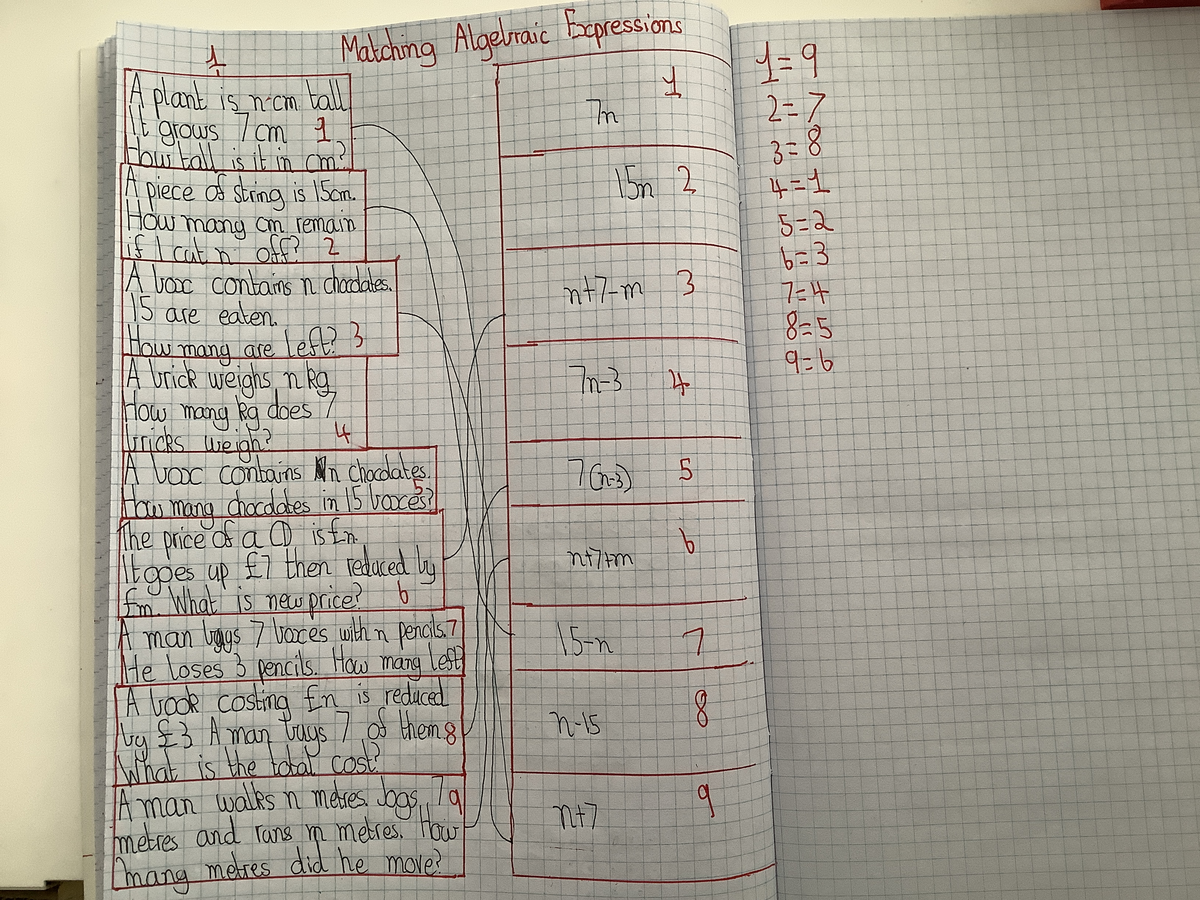 Matching Algebraic Expressions
1
A plant is n cm tall
It grows 7 cm 1
How tall is it in cm?
A piece of string is 15cm.
How many cm remain
if I cut n off? 2
A box contains n chocdates.
15 are eaten.
How many are left? 3
A brick weighs n kg
How many kg does 7
bricks weigh? 4
A box contains n chocdates.
How many chocdates in 15 boxes? 5
The price of a CD is £n.
It goes up £7 then reduced by
£m. What is new price? 6
A man buys 7 boxes with n pencils. 7
He loses 3 pencils. How many left?
A book costing £n is reduced
by £3. A man buys 7 of them 8
What is the total cost?
A man walks n metres. Jogs 7 9
metres and rans m metres. How
many metres did he move?
7n 1
15n 2
n+7-m 3
7n-3 4
7(n-3) 5
n+7+m 6
15-n 7
n-15 8
n+7 9
1=9
2=7
3=8
4=1
5=2
6=3
7=4
8=5
9=6